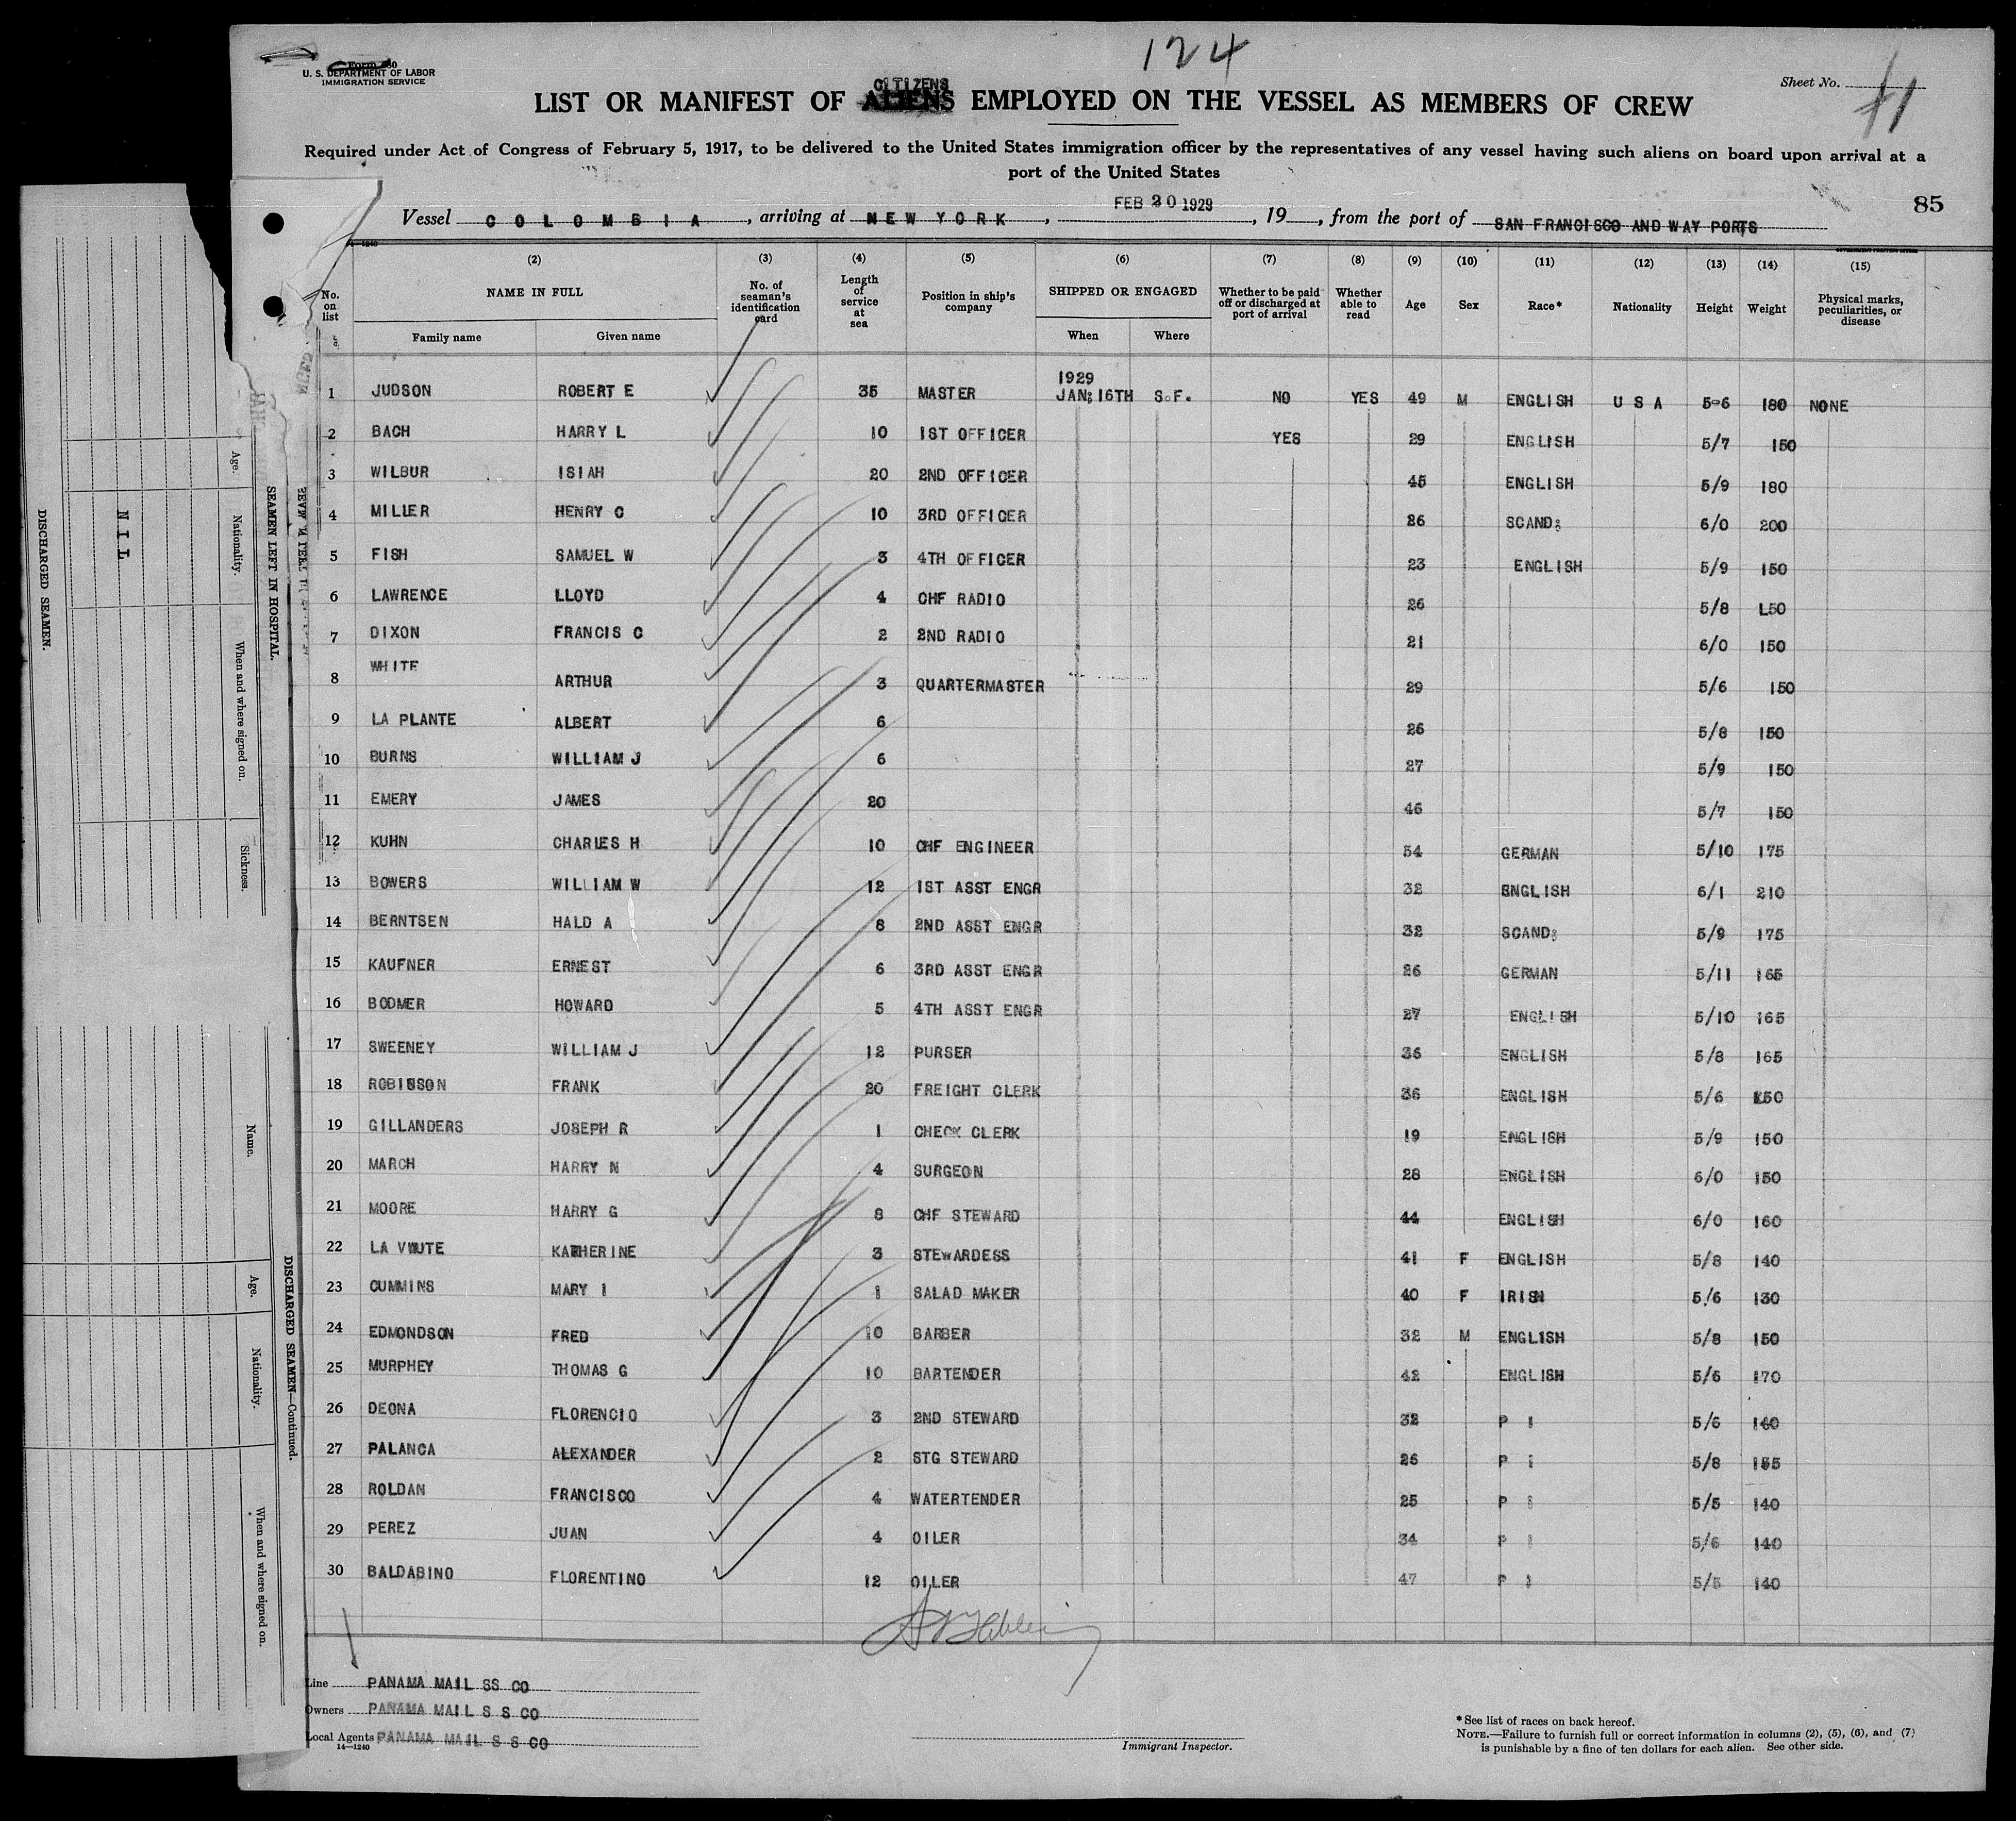 124
Form 680
U. S. DEPARTMENT OF LABOR
IMMIGRATION SERVICE
Sheet No. 1
CITIZENS
LIST OR MANIFEST OF ALIENS EMPLOYED ON THE VESSEL AS MEMBERS OF CREW
Required under Act of Congress of February 5, 1917, to be delivered to the United States immigration officer by the representatives of any vessel having such aliens on board upon arrival at a
port of the United States
85
Vessel COLOMBIA, arriving at NEW YORK, FEB 20 1929, 19, from the port of SAN FRANCISCO AND WAY PORTS
14—1240
(2) (3) (4) (5) (6) (7) (8) (9) (10) (11) (12) (13) (14) (15)
No. on list NAME IN FULL No. of seaman's identification card Length of service at sea Position in ship's company SHIPPED OR ENGAGED Whether to be paid off or discharged at port of arrival Whether able to read Age Sex Race* Nationality Height Weight Physical marks, peculiarities, or disease
Family name Given name When Where
1 JUDSON ROBERT E 35 MASTER 1929 JAN; 16TH S.F. NO YES 49 M ENGLISH U S A 5-6 180 NONE
2 BACH HARRY L 10 1ST OFFICER YES 29 ENGLISH 5/7 150
3 WILBUR ISIAH 20 2ND OFFICER 45 ENGLISH 5/9 180
4 MILLER HENRY C 10 3RD OFFICER 26 SCAND; 6/0 200
5 FISH SAMUEL W 3 4TH OFFICER 23 ENGLISH 5/9 150
6 LAWRENCE LLOYD 4 CHF RADIO 26 5/8 L50
7 DIXON FRANCIS C 2 2ND RADIO 21 6/0 150
8 WHITE ARTHUR 3 QUARTERMASTER 29 5/6 150
9 LA PLANTE ALBERT 6 26 5/8 150
10 BURNS WILLIAM J 6 27 5/9 150
11 EMERY JAMES 20 46 5/7 150
12 KUHN CHARLES H 10 CHF ENGINEER 54 GERMAN 5/10 175
13 BOWERS WILLIAM W 12 1ST ASST ENGR 32 ENGLISH 6/1 210
14 BERNTSEN HALD A 8 2ND ASST ENGR 32 SCAND; 5/9 175
15 KAUFNER ERNEST 6 3RD ASST ENGR 26 GERMAN 5/11 165
16 BODMER HOWARD 5 4TH ASST ENGR 27 ENGLISH 5/10 165
17 SWEENEY WILLIAM J 12 PURSER 36 ENGLISH 5/8 165
18 ROBINSON FRANK 20 FREIGHT CLERK 36 ENGLISH 5/6 150
19 GILLANDERS JOSEPH R 1 CHECK CLERK 19 ENGLISH 5/9 150
20 MARCH HARRY N 4 SURGEON 28 ENGLISH 6/0 150
21 MOORE HARRY G 8 CHF STEWARD 44 ENGLISH 6/0 160
22 LA KATHERINE 3 STEWARDESS 41 F ENGLISH 5/8 140
23 CUMMINS MARY I 1 SALAD MAKER 40 F IRISH 5/6 130
24 EDMONDSON FRED 10 BARBER 32 M ENGLISH 5/8 150
25 MURPHEY THOMAS G 10 BARTENDER 42 ENGLISH 5/6 170
26 DEONA FLORENCIO 3 2ND STEWARD 32 P I 5/6 140
27 PALANCA ALEXANDER 2 STG STEWARD 26 P I 5/8 155
28 ROLDAN FRANCISCO 4 WATERTENDER 25 P I 5/5 140
29 PEREZ JUAN 4 OILER 34 P I 5/6 140
30 BALDABINO FLORENTINO 12 OILER 47 P I 5/5 140
Line PANAMA MAIL SS CO
Owners PANAMA MAIL S S CO
Local Agents PANAMA MAIL S S CO
14—1240
Immigrant Inspector.
*See list of races on back hereof.
NOTE.—Failure to furnish full or correct information in columns (2), (5), (6), and (7)
is punishable by a fine of ten dollars for each alien. See other side.
DISCHARGED SEAMEN.
NIL
Age.
Nationality.
When and where signed on.
Sickness.
SEAMEN LEFT IN HOSPITAL.
Name.
Age.
Nationality.
When and where signed on.
DISCHARGED SEAMEN—Continued.